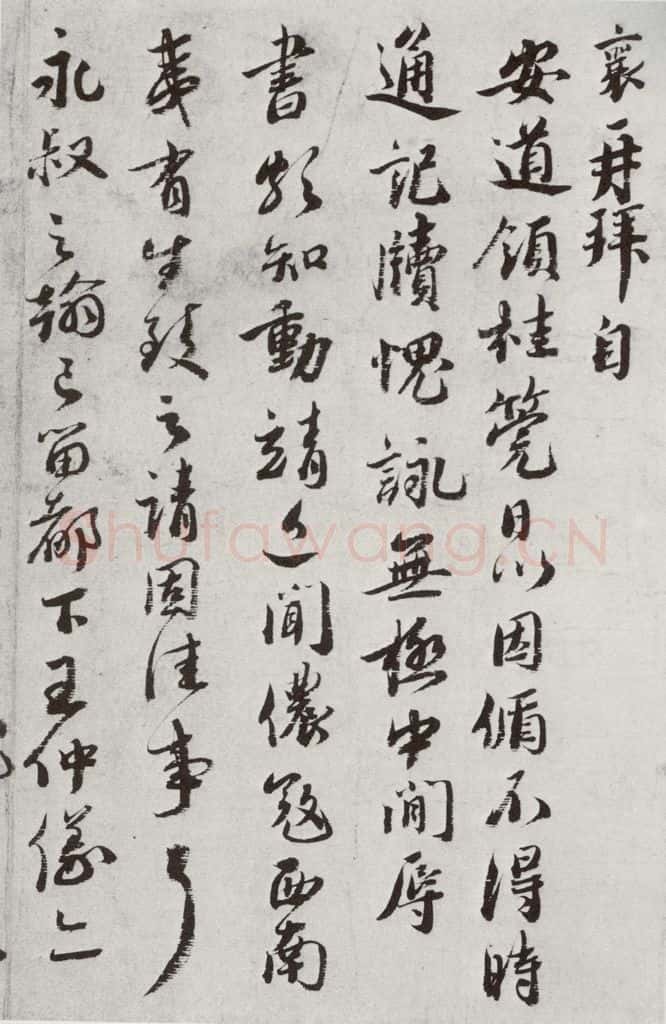 襄再拜自
安道領桂筦日以因循不得時
通記牘愧詠無極中間辱
書頗知動靖近聞儂寇西南
夷有生致之請固佳事耳
永叔之翰已留都下王仲儀亦
shufawang.CN